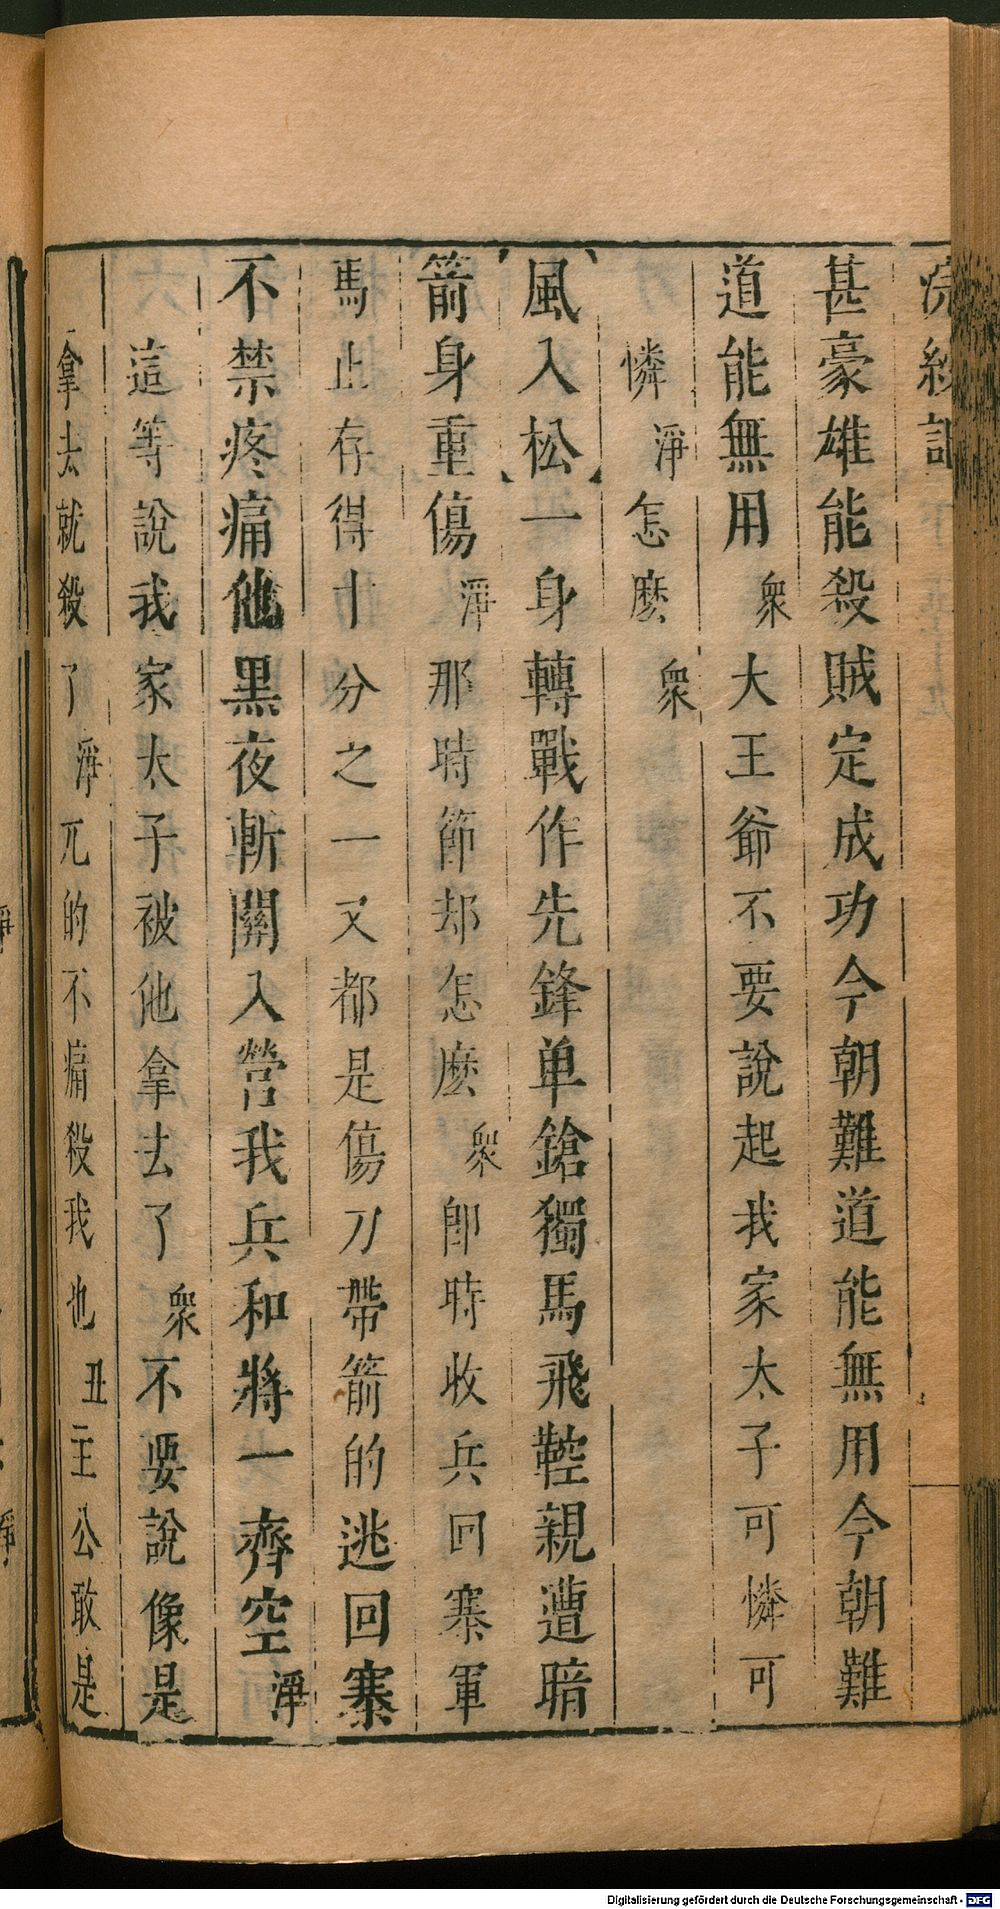 浣紗記
甚豪雄能殺賊定成功今朝難道能無用今朝難
道能無用衆大王爺不要說起我家太子可憐可
憐淨怎麽衆
風入松一身轉戰作先鋒单鎗獨馬飛鞚親遭暗
箭身重傷淨那時節却怎麽衆卽時收兵回寨軍
馬止存得十分之一又都是傷刀帶箭的逃回寨
不禁疼痛他黑夜斬關入營我兵和將一齊空淨
這等說我家太子被他拿去了衆不要說像是
拿去就殺了淨兀的不痛殺我也丑主公敢是
淨
淨
Digitalisierung gefördert durch die Deutsche Forschungsgemeinschaft - DFG